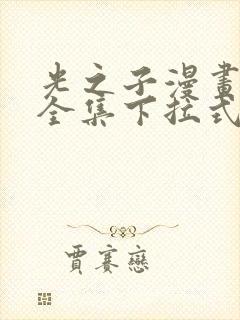 光之子漫畫
全集下拉式
賈賽戀